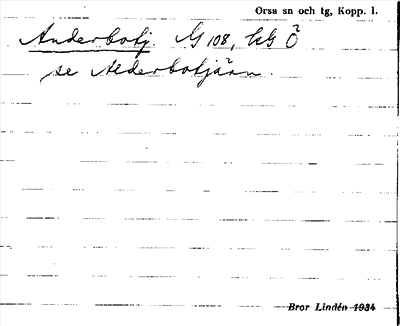 Orsa sn och tg, Kopp. l.
Anderbotj. G 108, kG Ö
se Alderbotjärn.
Bror Lindén 1934